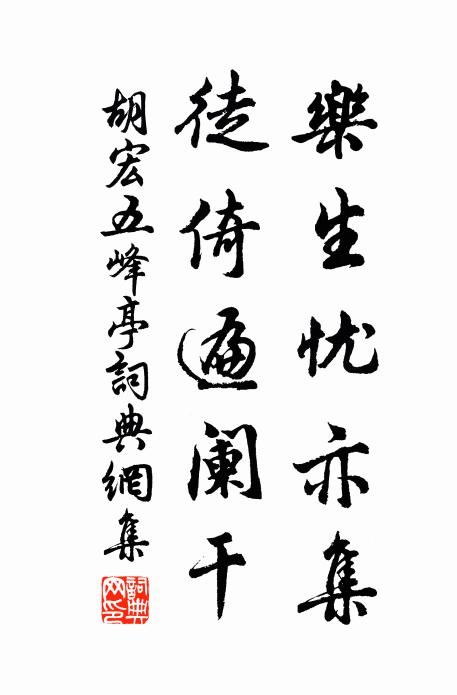 樂生忧亦集
徒倚遍阑干
胡宏五峰亭詞典網集
詞典网印